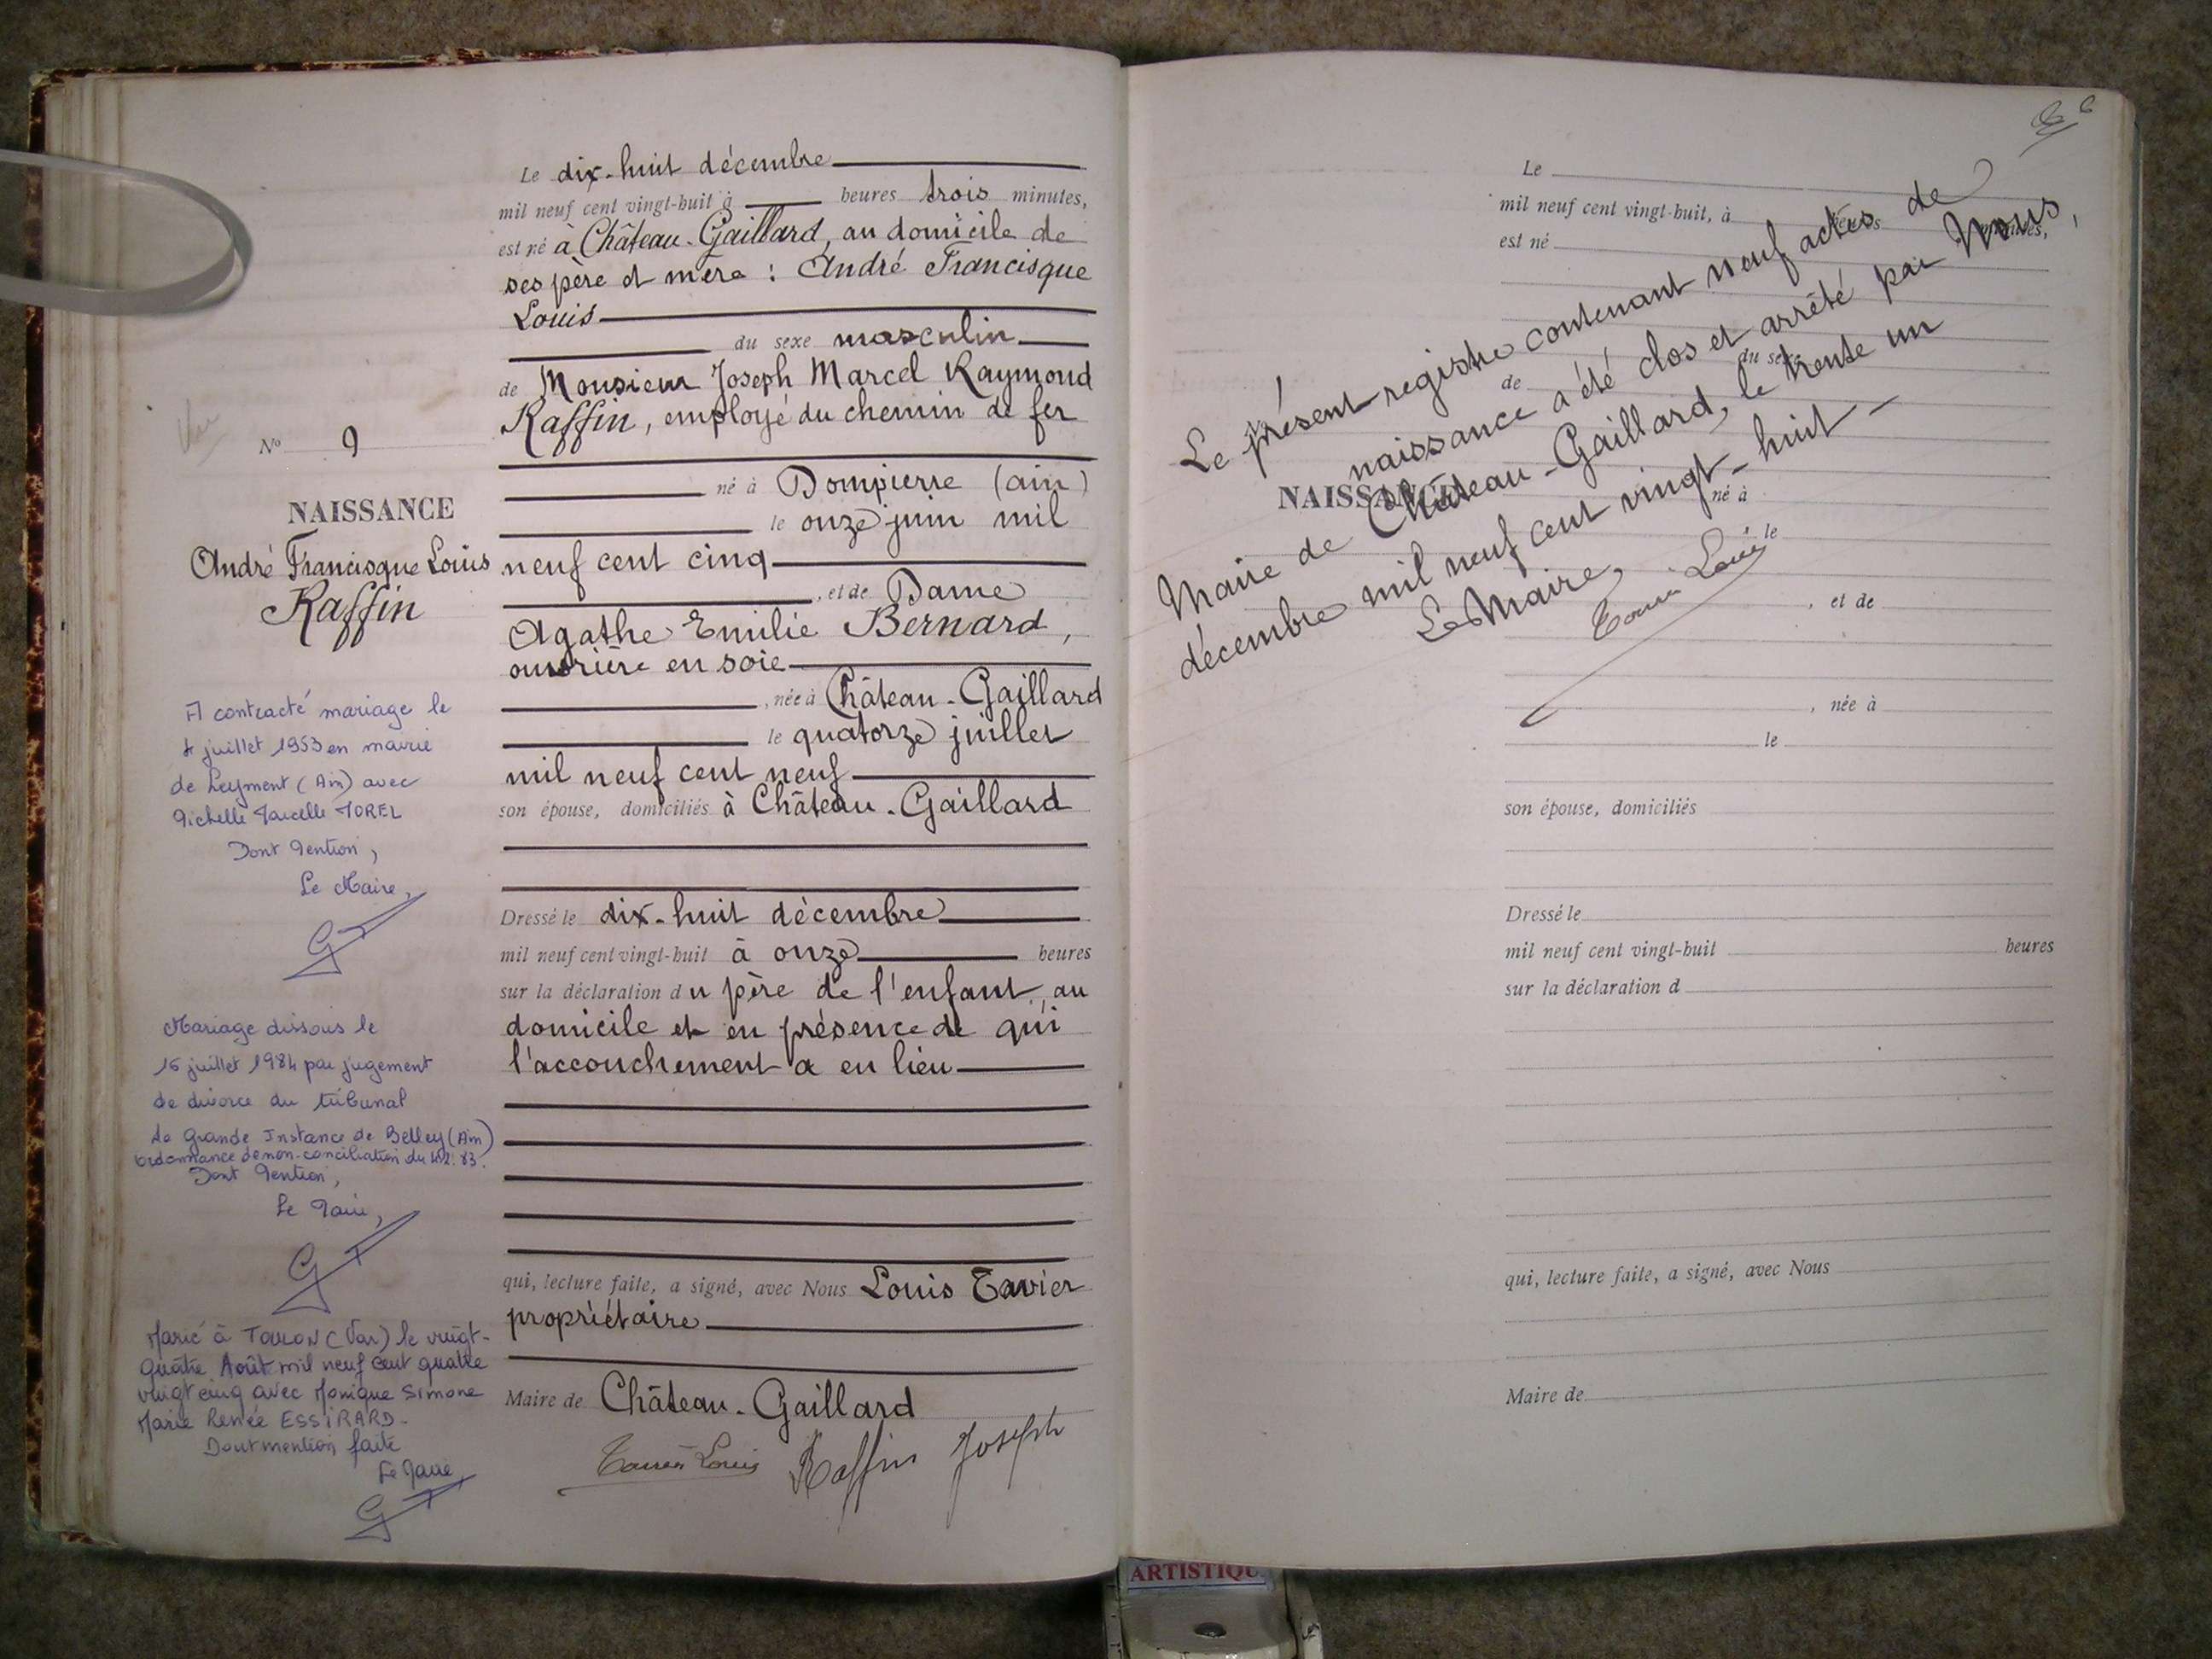 Le dix-huit décembre
mil neuf cent vingt-huit à heures trois minutes,
est né à Château-Gaillard, au domicile de
ses père et mère : André Francisque
Louis
du sexe masculin
de Monsieur Joseph Marcel Raymond
Raffin, employé du chemin de fer
né à Dompierre (ain)
le onze juin mil
neuf cent cinq
, et de Dame
Agathe Emilie Bernard,
ouvrière en soie
, née à Château-Gaillard
le quatorze juillet
mil neuf cent neuf
son épouse, domiciliés à Château-Gaillard
Dressé le dix-huit décembre
mil neuf cent vingt-huit à onze heures
sur la déclaration du père de l'enfant, au
domicile et en présence de qui
l'accouchement a eu lieu
qui, lecture faite, a signé, avec Nous Louis Tavier
propriétaire
Maire de Château-Gaillard
Louis Raffin Joseph
Nº 9
NAISSANCE
André Francisque Louis
Raffin
A contracté mariage le
4 juillet 1953 en mairie
de Leyment (Ain) avec
Michelle Marcelle MOREL
Dont Mention,
Le Maire,
Mariage dissous le
16 juillet 1984 par jugement
de divorce du tribunal
de Grande Instance de Belley (Ain)
ordonnance de non-conciliation du
Dont Mention,
Le Maire,
Marié à TOULON (Var) le vingt-
quatre Août mil neuf cent quatre
vingt cinq avec Monique Simone
Marie Renée ESSIRARD-
Dont mention faite
Le Maire,
6
Le
mil neuf cent vingt-huit, à heures minutes,
est né
du sexe
de
NAISSANCE
né à
le
, et de
, née à
le
son épouse, domiciliés
Dressé le
mil neuf cent vingt-huit heures
sur la déclaration d
qui, lecture faite, a signé, avec Nous
Maire de
Le présent registre contenant neuf actes de
naissance a été clos et arrêté par Nous,
Maire de Château-Gaillard, le trente un
décembre mil neuf cent vingt-huit-
Le Maire,
Louis
ARTISTIQU